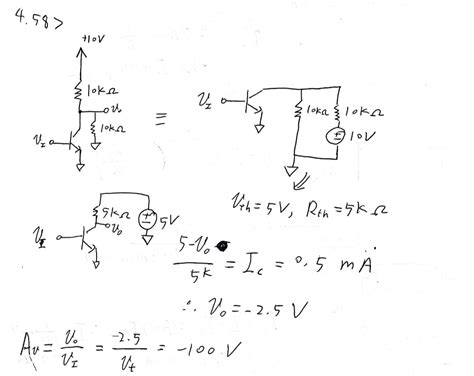 4.58>
+10V
10kΩ
vo
10kΩ
vI
≡
vI
10kΩ
10kΩ
10V
Vth = 5V, Rth = 5kΩ
5kΩ
vo
5V
vI
5-Vo / 5k = Ic = 0.5 mA
∴ Vo = -2.5 V
Av = vo / vI = -2.5 / Vt = -100 V